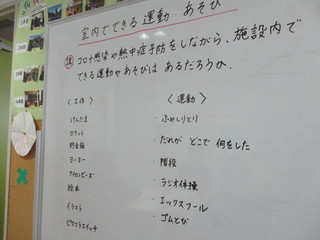 室内でできる運動・あそび
課 コロナ感染や熱中症予防をしながら、施設内で
できる運動やあそびは あるだろうか。
〈工作〉
けんだま
ロケット
貯金箱
ヨーヨー
アイロンビーズ
絵本
イラスト
ピタゴラスイッチ
〈運動〉
・ふやしりとり
・だれが どこで 何をした
・階段
・ラジオ体操
・エックスプール
・ゴムとび